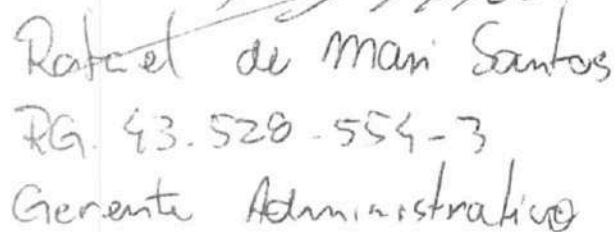 Rafael de Mari Santos
RG. 43.528.554-3
Gerente Administrativo